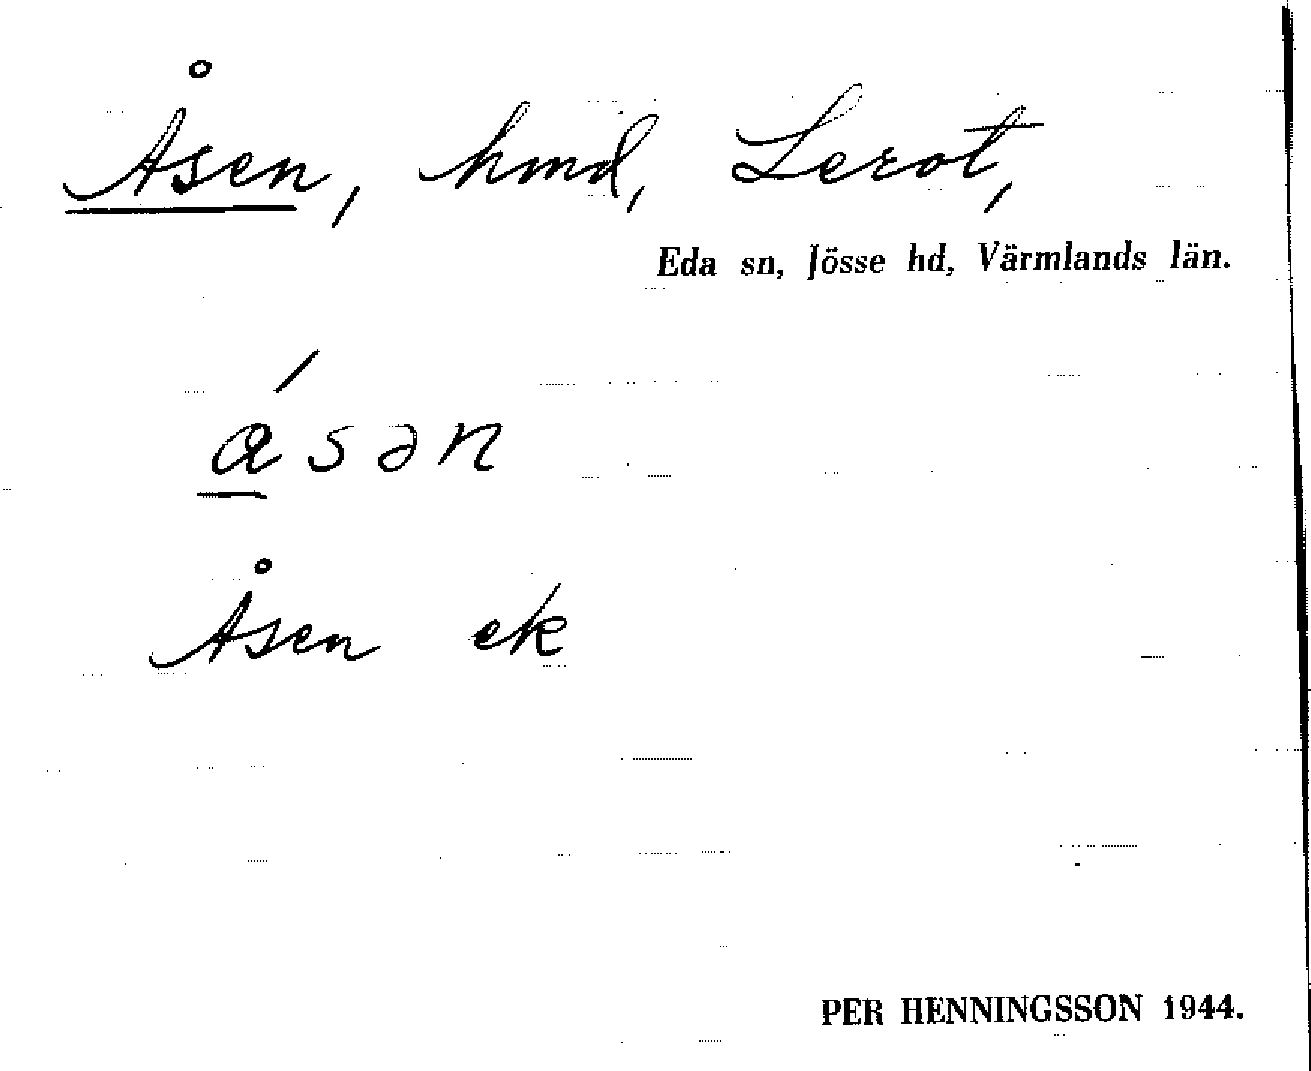 Åsen, hmd, Lerot,
Eda sn, Jösse hd, Värmlands län.
ásən
Åsen ek
PER HENNINGSSON 1944.